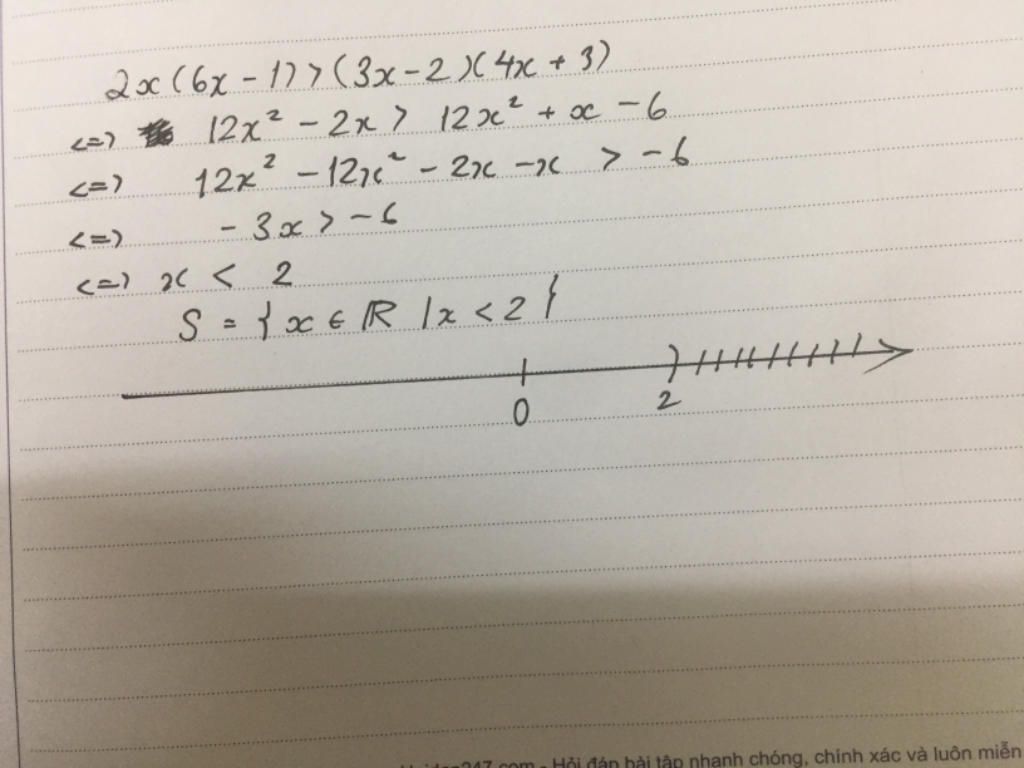 2x(6x - 1) > (3x - 2)(4x + 3)
<=> 12x² - 2x > 12x² + x - 6
<=> 12x² - 12x² - 2x - x > -6
<=> - 3x > -6
<=> x < 2
S = { x ∈ ℝ | x < 2 }
0 2
247.com - Hỏi đáp bài tập nhanh chóng, chính xác và luôn miễn